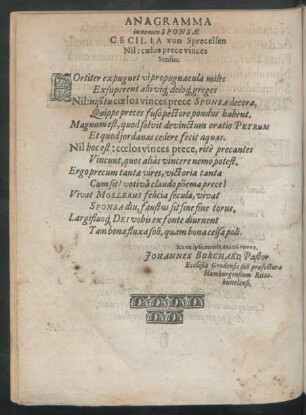 ANAGRAMMA
in nomen SPONSÆ
CECILIA von Spreckelsen
Nil: cœlos prece vinces
Sensus.
FOrtiter expugnet vi propugnacula miles
Exsuperent alii vig, dolog, greges
Nil: nisi tu cœlos vinces prece SPONSA decora,
Quippe preces fuso pectore pondus habent,
Magnum est, quod solvit devinctum oratio PETRUM
Et quod jordanas cedere fecit aquas.
Nil hoc est: cœlos vinces prece, ritè precantes
Vincunt, quos aliàs vincere nemo potest.
Ergo precum tanta vires, victoria tanta
Cum sit! votivâ claudo pöema prece!
Vivat MOLLERUS felicia secula, vivat
SPONSA diu, faustus sit sine fine torus,
Largifluoq; DEI vobis ex fonte diurnent
Tam bona fluxa soli, quam bona celsa poli.
Ita ex
JOHANNES BURCHARD, Pastor
Ecclesiæ Grodensis sub præfectura
Hamburgensium Ritze-
buttelensi.